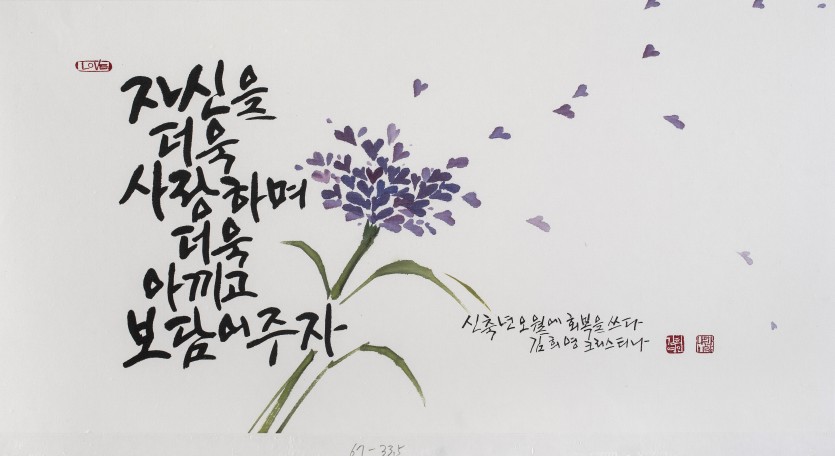 LOVE
자신을
더욱
사랑하며
더욱
아끼고
보담어주자
신축년오월에 회복을쓰다
김희영크리스티나
67-33.5